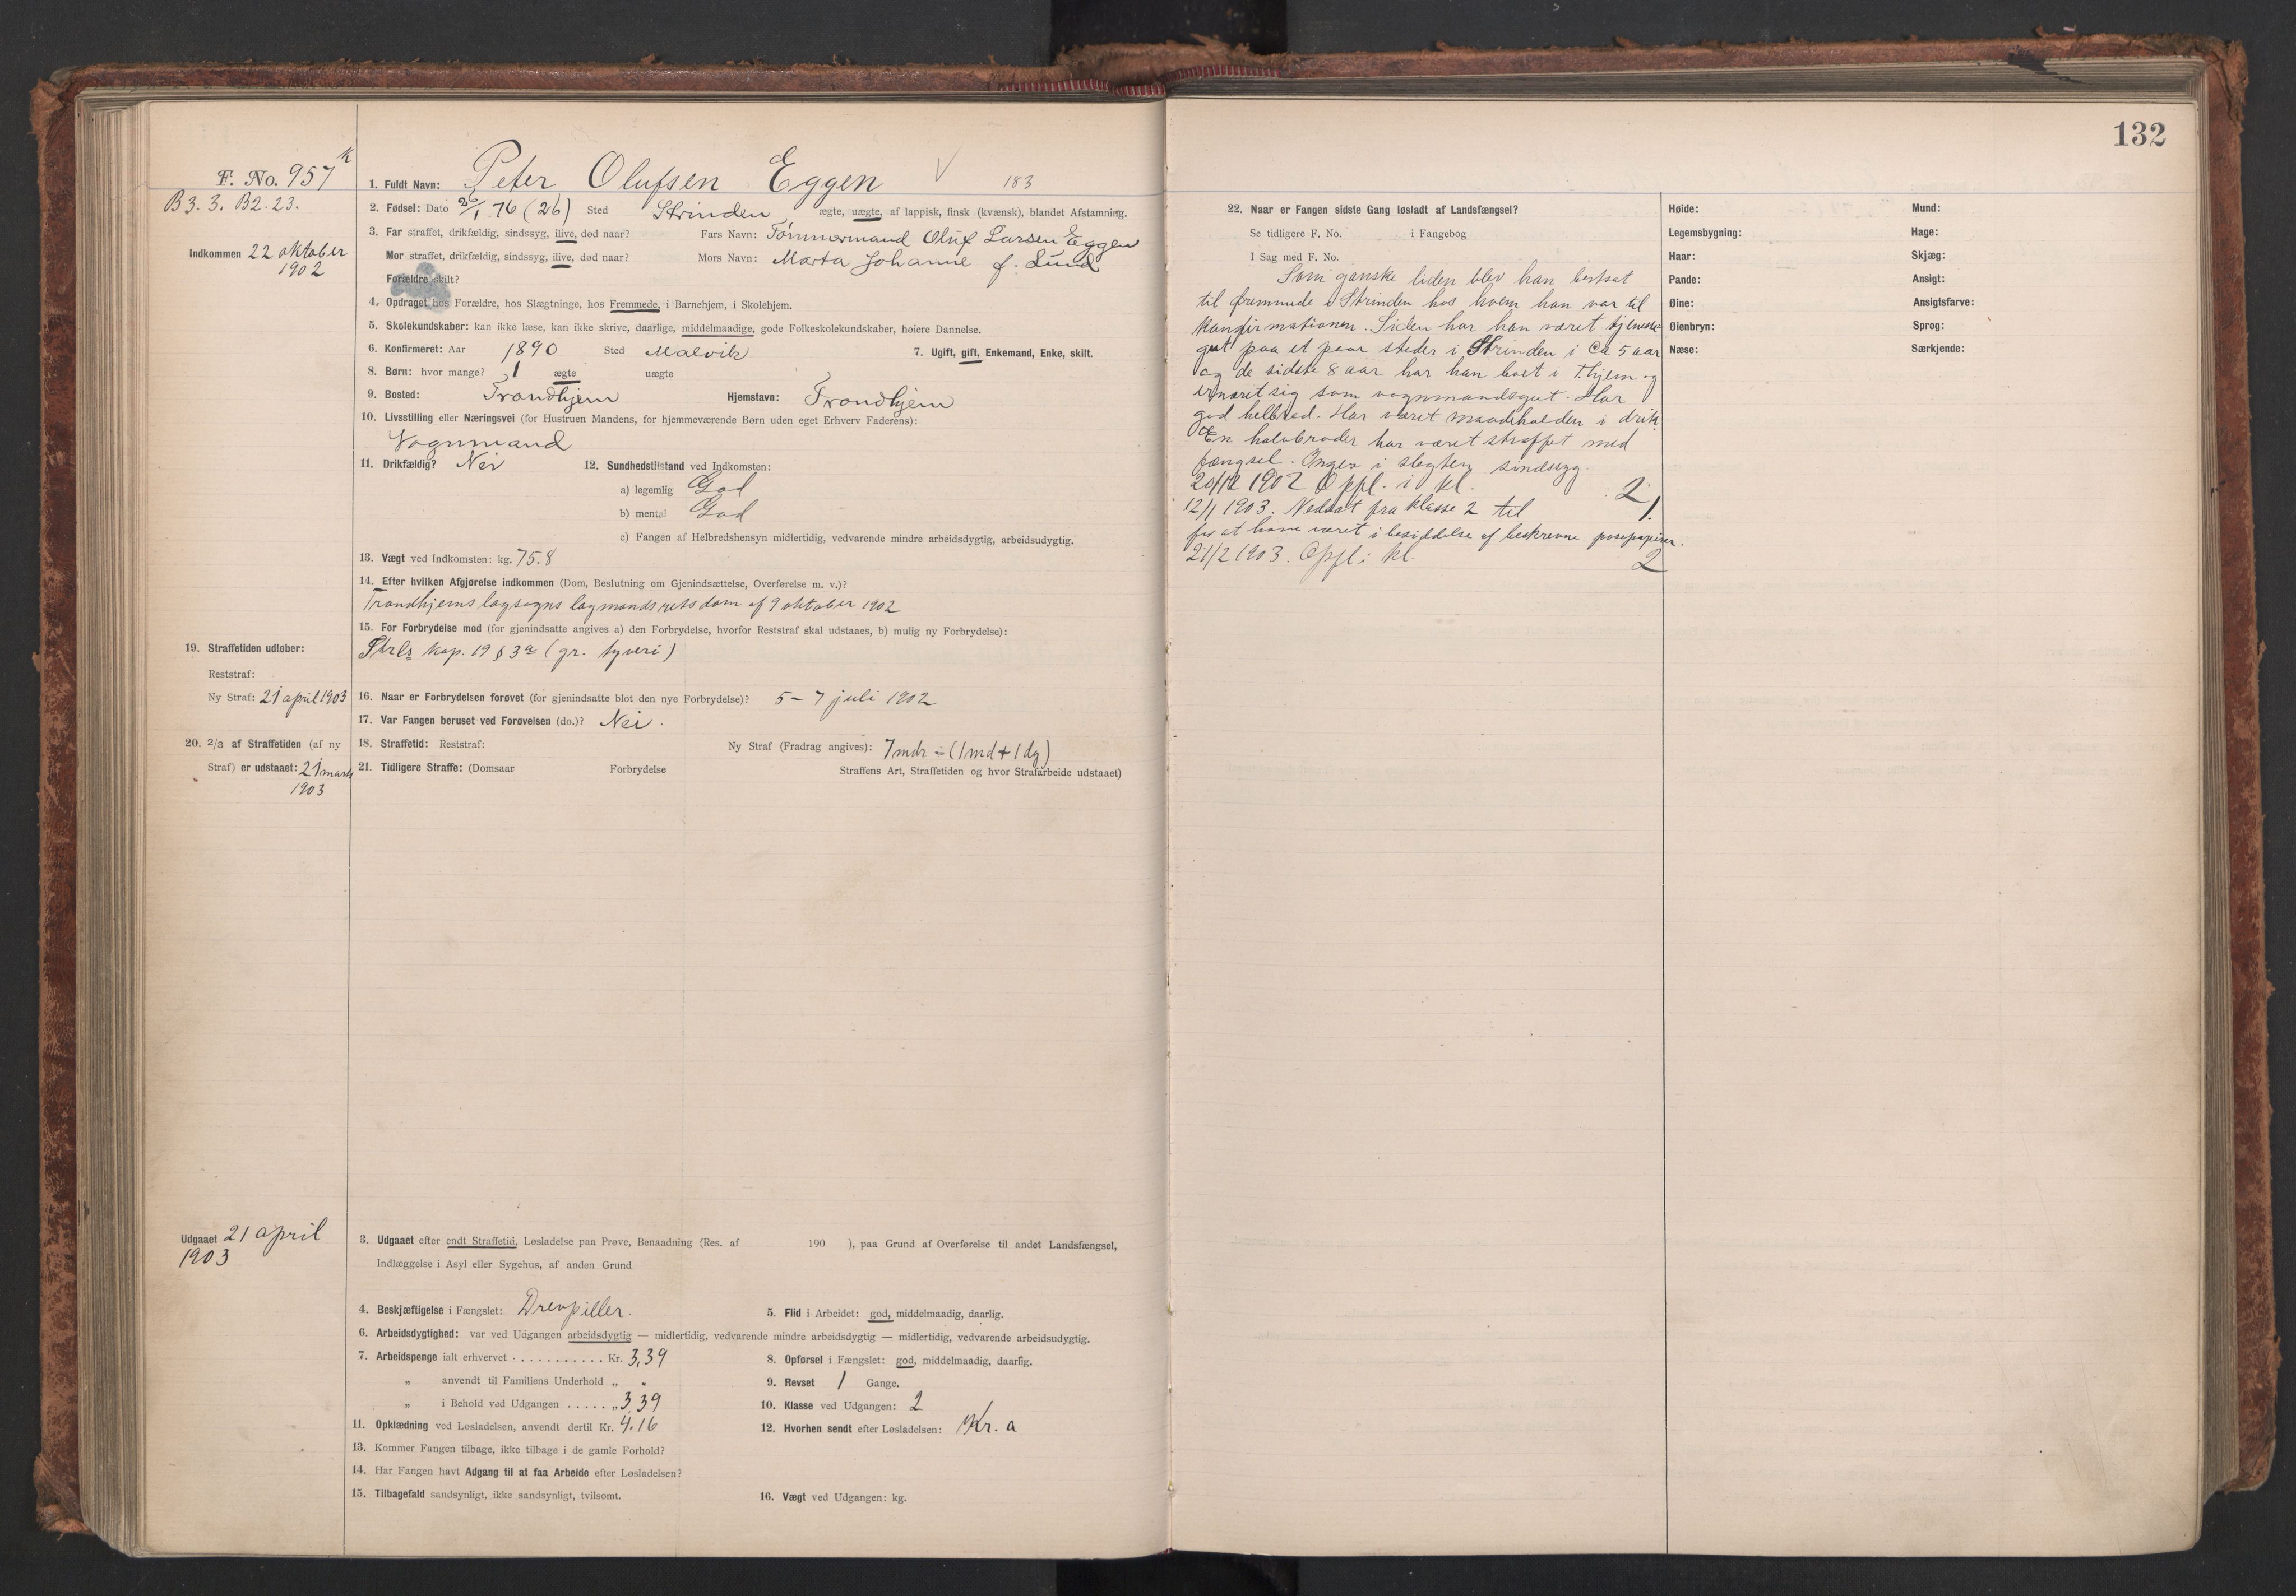 132
F. No. 957
B 3. 3. B2. 23.
Indkommen 22 oktober
1902
19. Straffetiden udløber:
Reststraf:
Ny Straf: 21 april 1903
20. 2/3 af Straffetiden (af ny
Straf) er udstaaet: 21 marts
1903
Udgaaet 21 april
1903
1. Fuldt Navn: Peter Olufsen Eggen V 183
2. Fødsel: Dato 26/1 76 (26) Sted Strinden, ægte, uægte, af lappisk, finsk (kvænsk), blandet Afstamning.
3. Far straffet, drikfældig, sindssyg, ilive, død naar? Fars Navn: Tømmermand Oluf Larsen Eggen
Mor straffet, drikfældig, sindssyg, ilive, død naar? Mors Navn: Marta Johanne f. Lund
Forældre skilt?
4. Opdraget hos Forældre, hos Slægtninge, hos Fremmede, i Barnehjem, i Skolehjem.
5. Skolekundskaber: kan ikke læse, kan ikke skrive, daarlige, middelmaadige, gode Folkeskolekundskaber, høiere Dannelse.
6. Konfirmeret: Aar 1890 Sted Malvik 7. Ugift, gift, Enkemand, Enke, skilt.
8. Børn: hvor mange? 1 ægte uægte
9. Bosted: Trondhjem Hjemstavn: Trondhjem
10. Livsstilling eller Næringsvei (for Hustruen Mandens, for hjemmeværende Børn uden eget Erhverv Faderens):
Vognmand
11. Drikfældig? Nei 12. Sundhedstilstand ved Indkomsten:
a) legemlig God
b) mental God
c) Fangen af Helbredshensyn midlertidig, vedvarende mindre arbeidsdygtig, arbeidsudygtig.
13. Vægt ved Indkomsten: kg. 75.8
14. Efter hvilken Afgjørelse indkommen (Dom, Beslutning om Gjenindsættelse, Overførelse m. v.)?
Trondhjems lagsogns lagmandsretsdom af 9 oktober 1902
15. For Forbrydelse mod (for gjenindsatte angives a) den Forbrydelse, hvorfor Reststraf skal udstaaes, b) mulig ny Forbrydelse):
Strls kap. 19 § 3a (gr. tyveri)
16. Naar er Forbrydelsen forøvet (for gjenindsatte blot den nye Forbrydelse)? 5 - 7 juli 1902
17. Var Fangen beruset ved Forøvelsen (do.)? Nei.
18. Straffetid: Reststraf: Ny Straf (Fradrag angives): 7 mdr ÷ (1 md + 1 dg)
21. Tidligere Straffe: (Domsaar Forbrydelse Straffens Art, Straffetiden og hvor Strafarbeide udstaaet)
3. Udgaaet efter endt Straffetid, Løsladelse paa Prøve, Benaadning (Res. af 190 ), paa Grund af Overførelse til andet Landsfængsel,
Indlæggelse i Asyl eller Sygehus, af anden Grund
4. Beskjæftigelse i Fængslet: Drevpiller. 5. Flid i Arbeidet: god, middelmaadig, daarlig.
6. Arbeidsdygtighed: var ved Udgangen arbeidsdygtig — midlertidig, vedvarende mindre arbeidsdygtig — midlertidig, vedvarende arbeidsudygtig.
7. Arbeidspenge ialt erhvervet . . . . . . . . . . . Kr. 3,39 8. Opførsel i Fængslet: god, middelmaadig, daarlig.
„ anvendt til Familiens Underhold „ „ 9. Revset 1 Gange.
„ i Behold ved Udgangen . . . . . „ 3,39 10. Klasse ved Udgangen: 2
11. Opklædning ved Løsladelsen, anvendt dertil Kr. 4.16 12. Hvorhen sendt efter Løsladelsen: Kr. a
13. Kommer Fangen tilbage, ikke tilbage i de gamle Forhold?
14. Har Fangen havt Adgang til at faa Arbeide efter Løsladelsen?
15. Tilbagefald sandsynligt, ikke sandsynligt, tvilsomt. 16. Vægt ved Udgangen: kg.
22. Naar er Fangen sidste Gang løsladt af Landsfængsel?
Se tidligere F. No. i Fangebog
I Sag med F. No.
Som ganske liden blev han bortsat
til fremmede i Strinden hos hvem han var til
Konfirmationen. Siden har han været tjeneste-
gut paa et paar steder i Strinden i ca 5 aar
og de sidste 8 aar har han boet i T.hjem og
ernæret sig som vognmandsgut. Har
god helbred. Har været maadeholden i drik
En halvbroder har været straffet med
fængsel. Ingen i slegten sindssyg.
20/12 1902 Oppl. i kl. 2
12/1 1903. Nedsat fra klasse 2 til 1.
for at have været i besiddelse af beskrevne posepapirer.
21/2 1903. Oppl. i kl. 2
Høide:
Legemsbygning:
Haar:
Pande:
Øine:
Øienbryn:
Næse:
Mund:
Hage:
Skjæg:
Ansigt:
Ansigtsfarve:
Sprog:
Særkjende: